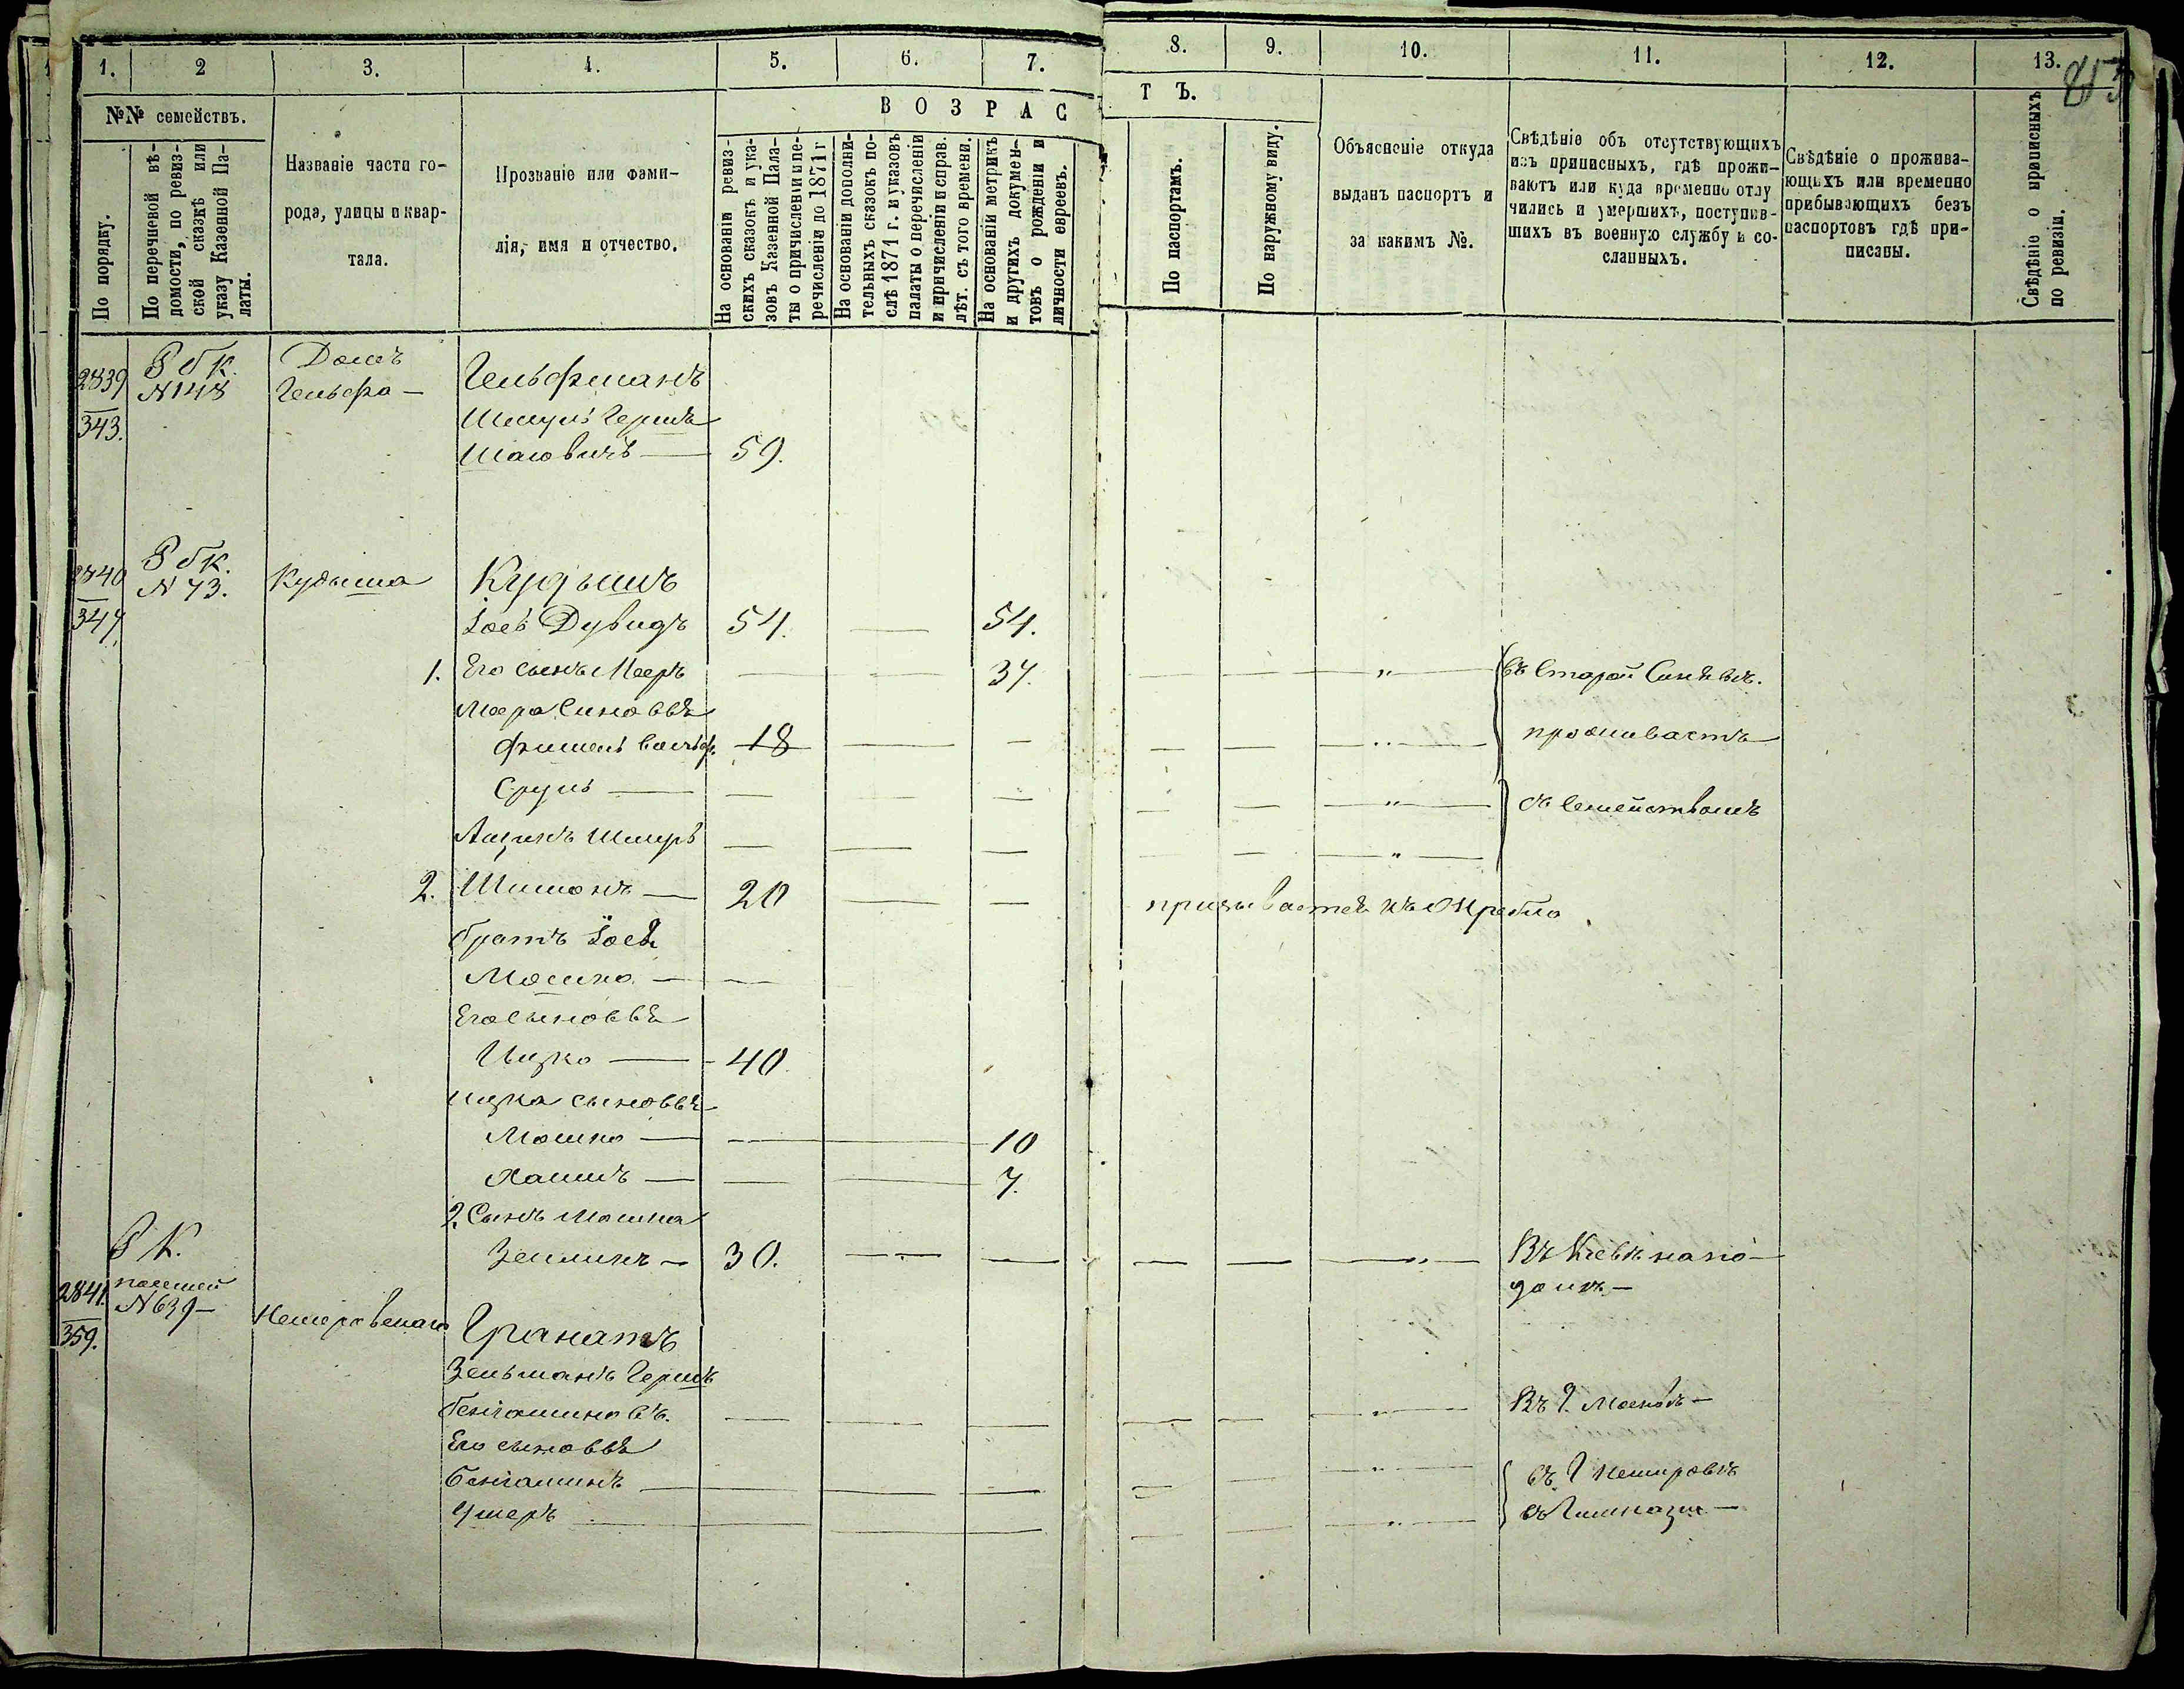 1.
2
3.
4.
5.
6.
7.
8.
9.
10.
11.
12.
13.
№№ семействъ.
ВОЗРАСТЪ.
По порядку.
По перечневой вѣ-
домости, по ревиз-
ской сказкѣ или
указу Казенной Па-
латы.
Названіе части го-
рода, улицы и квар-
тала.
Прозваніе или фами-
лія, имя и отчество.
На основаніи ревиз-
скихъ сказокъ и ука-
зовъ Казенной Пала-
ты о причисленіи и пе-
речисленіи до 1871 г
На основаніи дополни-
тельныхъ сказокъ по-
слѣ 1871 г. и указовъ
палаты о перечисленіи
и причисленіи и справ.
лѣт. съ того времени.
На основаніи метрикъ
и другихъ докумен-
товъ о рожденіи и
личности евреевъ.
По паспортамъ.
По наружному виду.
Объясненіе откуда
выданъ паспортъ и
за какимъ №.
Свѣдѣніе объ отсутствующихъ
изъ приписныхъ, гдѣ прожи-
ваютъ или куда временно отлу
чились и умершихъ, поступив-
шихъ въ военную службу и со-
сланныхъ.
Свѣдѣніе о прожива-
ющихъ или временно
прибывающихъ безъ
паспортовъ гдѣ при-
писаны.
Свѣдѣніе о приписныхъ
по ревизіи.
2839
343.
№148
Домъ
Гельфма—
Гельфманъ
Шмуль Гершъ
59.
2840
347
№ 73.
Кудыша
Кудышъ
Іосъ Дувидъ 54. — 54.
1. Его сынъ Мееръ — — 37. — — „ въ Старой Синявѣ.
Меера Синовья
Фишель Вольф. 18 — — — — „ проживаетъ
Сруль — — — — — — „ съ Семействомъ
Ицикъ Шмуръ — — — — — „
2. Шимонъ — 20 — — призывается къ Жребію
братъ Іося
Мошко — —
Его сыновья
Ицко — 40
Ицка сыновья
Мошко — — — 10
Хаимъ — — — 7.
2. Сынъ Мошка
Зельманъ — 30. — — — — „ Въ Кіевѣ нахо—
дится —
2841.
359.
№639—
Немировскаго
Гранатъ
Зельманъ Гершъ
Беніаминовъ. — — — — — „ Въ Г. Москвѣ —
Его сыновья
Беніаминъ — — — — — „ въ Г Немировѣ
Ушеръ — — — — — „ въ Гимназіи —